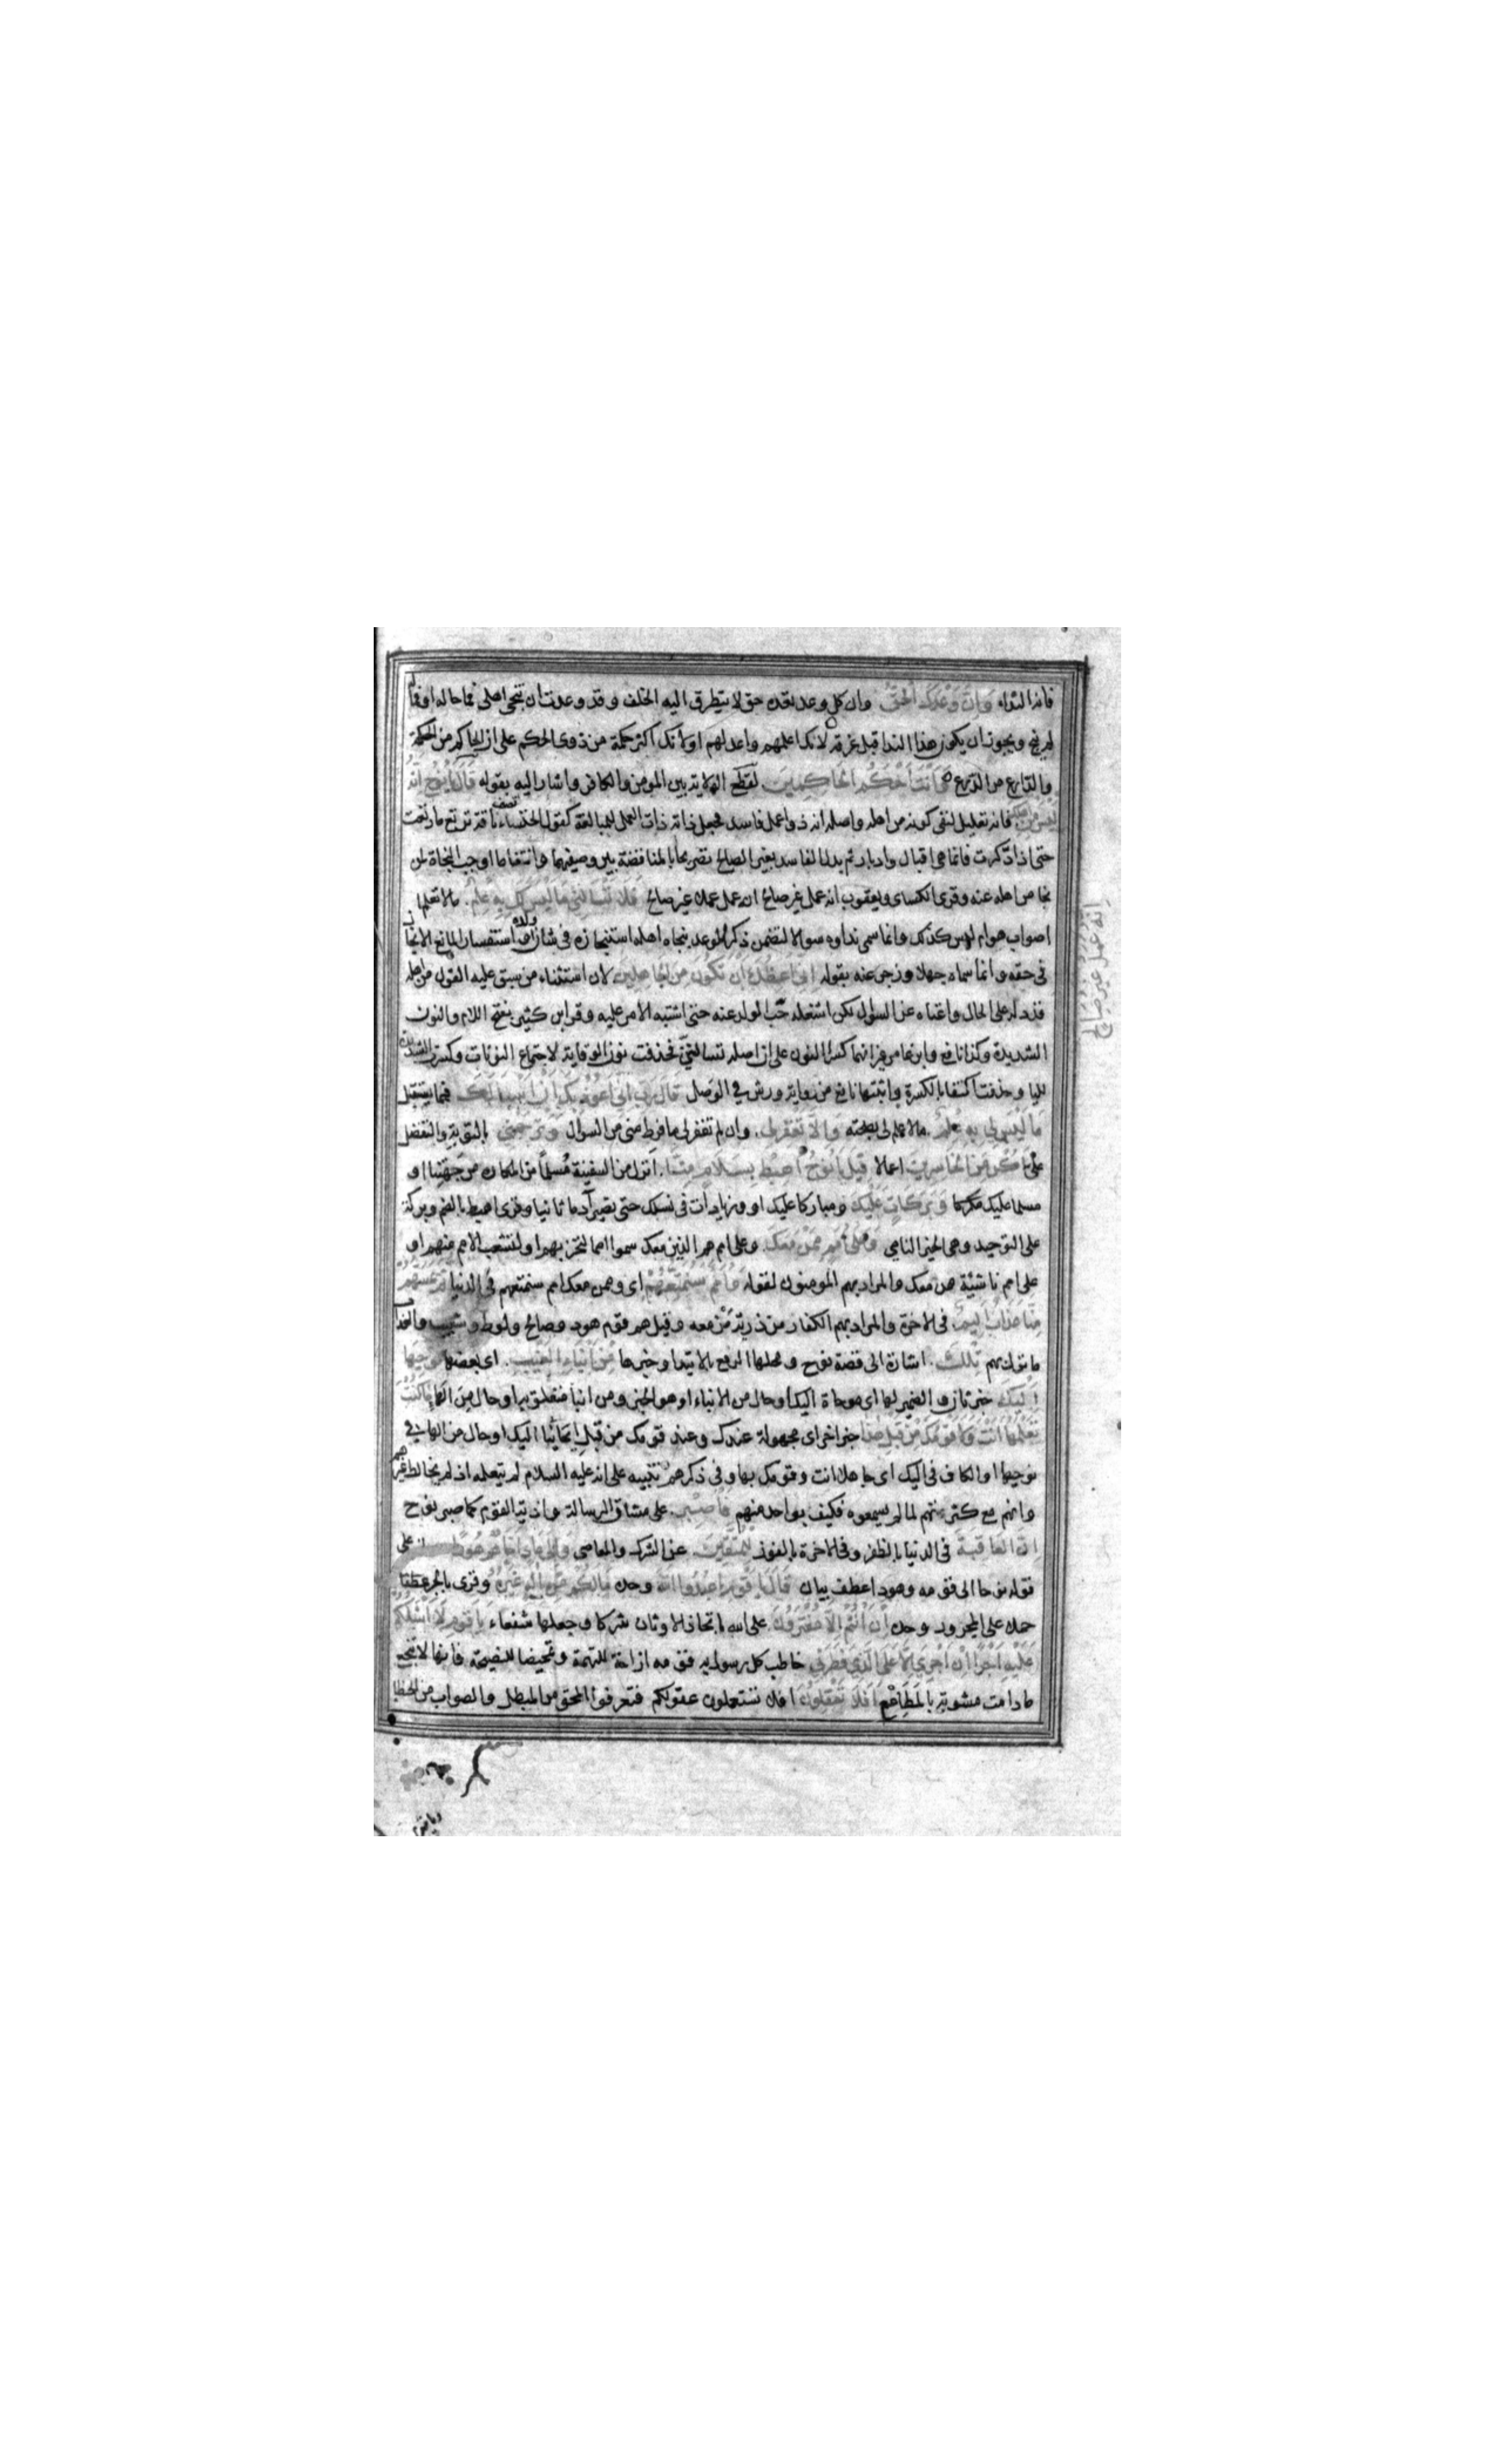 فانه النداء وَإِنَّ وَعْدَكَ الْحَقُّ وان كل وعد تعده حق لا يتطرق اليه الخلف وقد وعدت ان تنجى اهلى فما حاله او فما له
لم ينج ويجوز ان يكون هذا الندا قبل غرقه لانك اعلمهم واعدلهم او لانك اكثر حكمة من ذوى الحكم على ان الحاكم من الحكمة
والدارع من الدرع وَأَنْتَ أَحْكَمُ الْحَاكِمِينَ لقطع الولاية بين المومن والكافر واشار اليه بقوله قَالَ يَا نُوحُ إِنَّهُ
لَيْسَ مِنْ أَهْلِكَ فانه تعليل لنفى كونه من اهله واصله انه ذو اعمل فاسد فجعل ذاته ذات العمل للمبالغة كقول الخنساء تصف ناقة ترتع ما رتعت
حتى اذا ادّكرت فانما هى اقبال وادبار ثم بدل الفاسد بغير الصالح تصريحا بالمناقضة بين وصفيهما وانتفا ما اوجب النجاة لمن
نجا من اهله عنه وقرى الكساى ويعقوب انه عمل غير صالح اى عمل عملا غير صالح فَلَا تَسْأَلْنِي مَا لَيْسَ لَكَ بِهِ عِلْمٌ مالا تعلم ا
اصواب هو ام ليس كذلك وانما سمى نداوه سوالا لتضمن ذكر الموعد بنجاه اهله استنجازه فى شان ولده او استفسار المانع للانجا ز
فى حقه وانما سماه جهلا وزجر عنه بقوله إِنِّي أَعِظُكَ أَنْ تَكُونَ مِنَ الْجَاهِلِينَ لان استثناء من سبق عليه القول من اهله
قد دله على الحال واغناه عن السوال لكن اشغله حبّ الولد عنه حتى اشتبه الامر عليه وقرا ابن كثير بفتح اللام والنون
الشديدة وكذا نافع وابن عامر غير انهما كسرا النون على ان اصله تسالننى فحذفت نون الوقاية لاجتماع النونات وكسرت الشديدة
لليا وحذفت اكتفا بالكسرة واثبتها نافع من رواية ورش في الوصل قَالَ رَبِّ إِنِّي أَعُوذُ بِكَ أَنْ أَسْأَلَكَ فيما يستقبل
مَا لَيْسَ لِي بِهِ عِلْمٌ مالا علم لى بصحته وَإِلَّا تَغْفِرْ لِي وان لم تغفر لى ما فرط منى من السوال وَتَرْحَمْنِي بالتوبة والتفضل
على أَكُنْ مِنَ الْخَاسِرِينَ اعمالا قِيلَ يَا نُوحُ اهْبِطْ بِسَلَامٍ مِنَّا انزل من السفينة مُسلّما من المكاره من جهتنا او
مسلما عليك مكرما وَبَرَكَاتٍ عَلَيْكَ ومباركا عليك او وزيادات فى نسلك حتى تصير آدما ثانيا وقرى اهبط بالضم وبركة
على التوحيد وهى الخير النامى وَعَلَى أُمَمٍ مِمَّنْ مَعَكَ وعلى امم هم الذين معك سموا امما لتحزبهم او لتشعب الامم منهم او
على امم ناشئة ممن معك والمراد بهم المومنون لقوله وَأُمَمٌ سَنُمَتِّعُهُمْ اى وممن معك امم سنمتعهم فى الدنيا ثُمَّ يَمَسُّهُمْ
مِنَّا عَذَابٌ أَلِيمٌ فى الاخرة والمراد بهم الكفار من ذرية مَنْ معه وقيل هم قوم هود وصالح ولوط وشعيب والعذاب
ما نزل بهم تِلْكَ اشارة الى قصة نوح ومحلها الرفع بالابتدا وخبرها مِنْ أَنْبَاءِ الْغَيْبِ اى بعضها نُوحِيهَا
إِلَيْكَ خبر ثان والضمير لها اى موحاة اليك او حال من الانباء او هو الخبر ومن انبا متعلق به او حال من الها مَا كُنْتَ
تَعْلَمُهَا أَنْتَ وَلَا قَوْمُكَ مِنْ قَبْلِ هَذَا خبر اخر اى مجهولة عندك وعند قومك من قبل ايحائنا اليك او حال من الها في
نوحيها او الكاف فى اليك اى جاهلا انت وقومك بها وفى ذكرهم تنبيه على انه عليه السلام لم يتعلمه اذ لم يخالط غيرهم
وانهم مع كثرتهم لما لم يسمعوه فكيف بواحد منهم فَاصْبِرْ على مشاق الرسالة واذية القوم كما صبر نوح
إِنَّ الْعَاقِبَةَ فى الدنيا بالظفر وفى الاخرة بالفوز لِلْمُتَّقِينَ عن الشرك والمعاصى وَإِلَى عَادٍ أَخَاهُمْ هُودًا على
قوله نوحا الى قومه وهودا عطف بيان قَالَ يَا قَوْمِ اعْبُدُوا اللَّهَ وحده مَا لَكُمْ مِنْ إِلَهٍ غَيْرُهُ وقرى بالجر عطفا
حملا على المجرور وحده إِنْ أَنْتُمْ إِلَّا مُفْتَرُونَ على الله باتخاذ الاوثان شركا وجعلها شفعاء يَا قَوْمِ لَا أَسْأَلُكُمْ
عَلَيْهِ أَجْرًا إِنْ أَجْرِيَ إِلَّا عَلَى الَّذِي فَطَرَنِي خاطب كل رسول به قومه ازاحة للتهمة وتمحيضا للنصيحة فانها لا تنجع
ما دامت مشوبة بالمَطَامِع أَفَلَا تَعْقِلُونَ افلا تستعملون عقولكم فتعرفوا المحق من المبطل والصواب من الخطا
إِنَّهُ عَمَلٌ غَيْرُ صَالِحٍ
ويا قوم